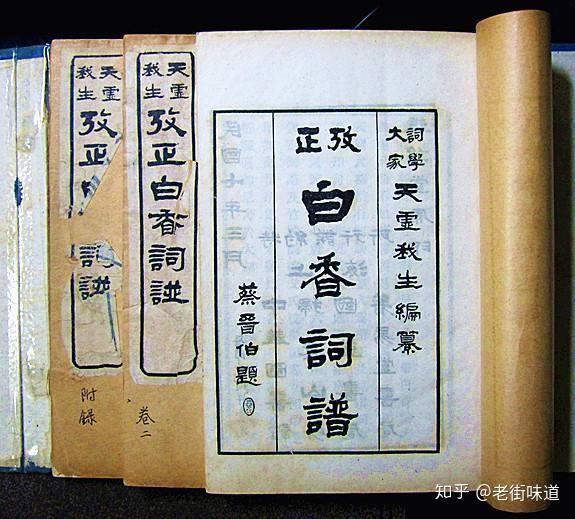 詞學大家天虛我生編纂
攷正
白香詞譜
蔡晉伯題
天虛我生
攷正白香詞譜
卷二
天虛我生
攷正
詞譜
附錄
知乎 @老街味道